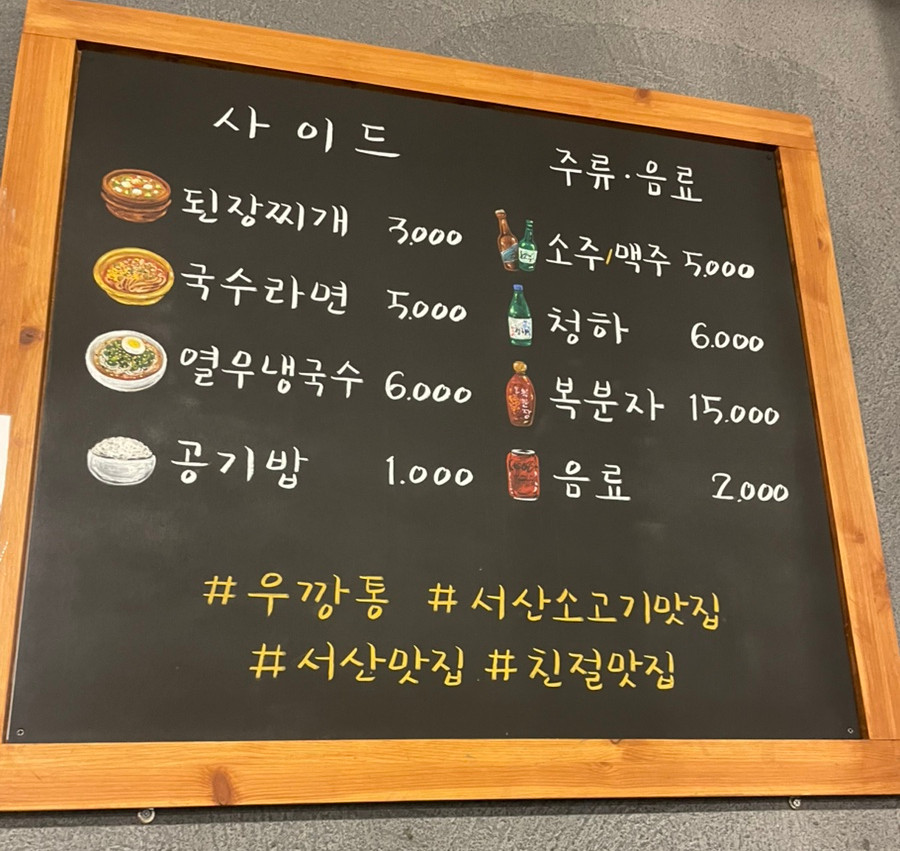 사이드
된장찌개 3.000
국수라면 5.000
열무냉국수 6.000
공기밥 1.000
주류·음료
소주/맥주 5.000
청하 6.000
복분자 15.000
음료 2.000
#우깡통 #서산소고기맛집
#서산맛집 #친절맛집